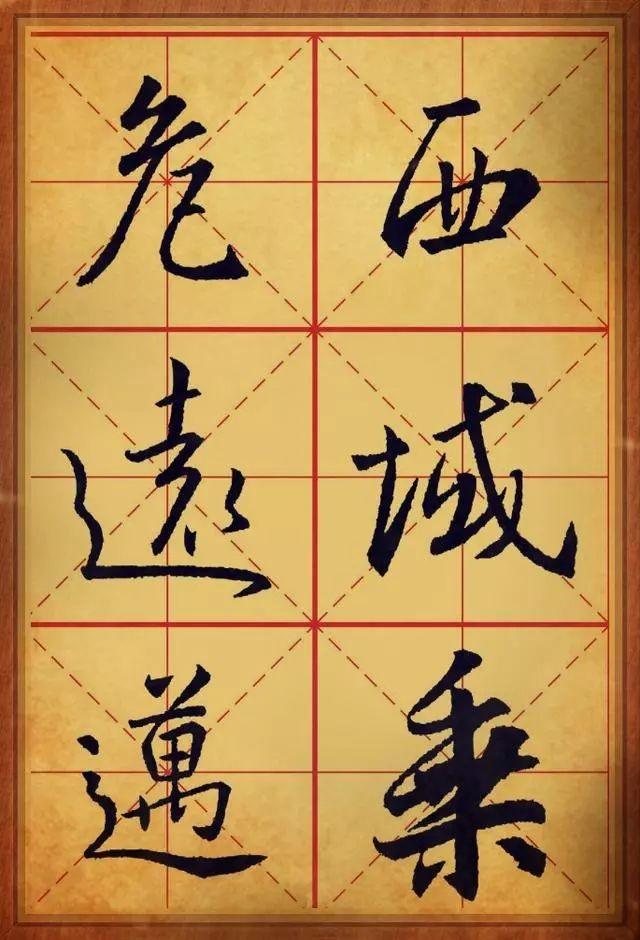 西域乘
危遠邁